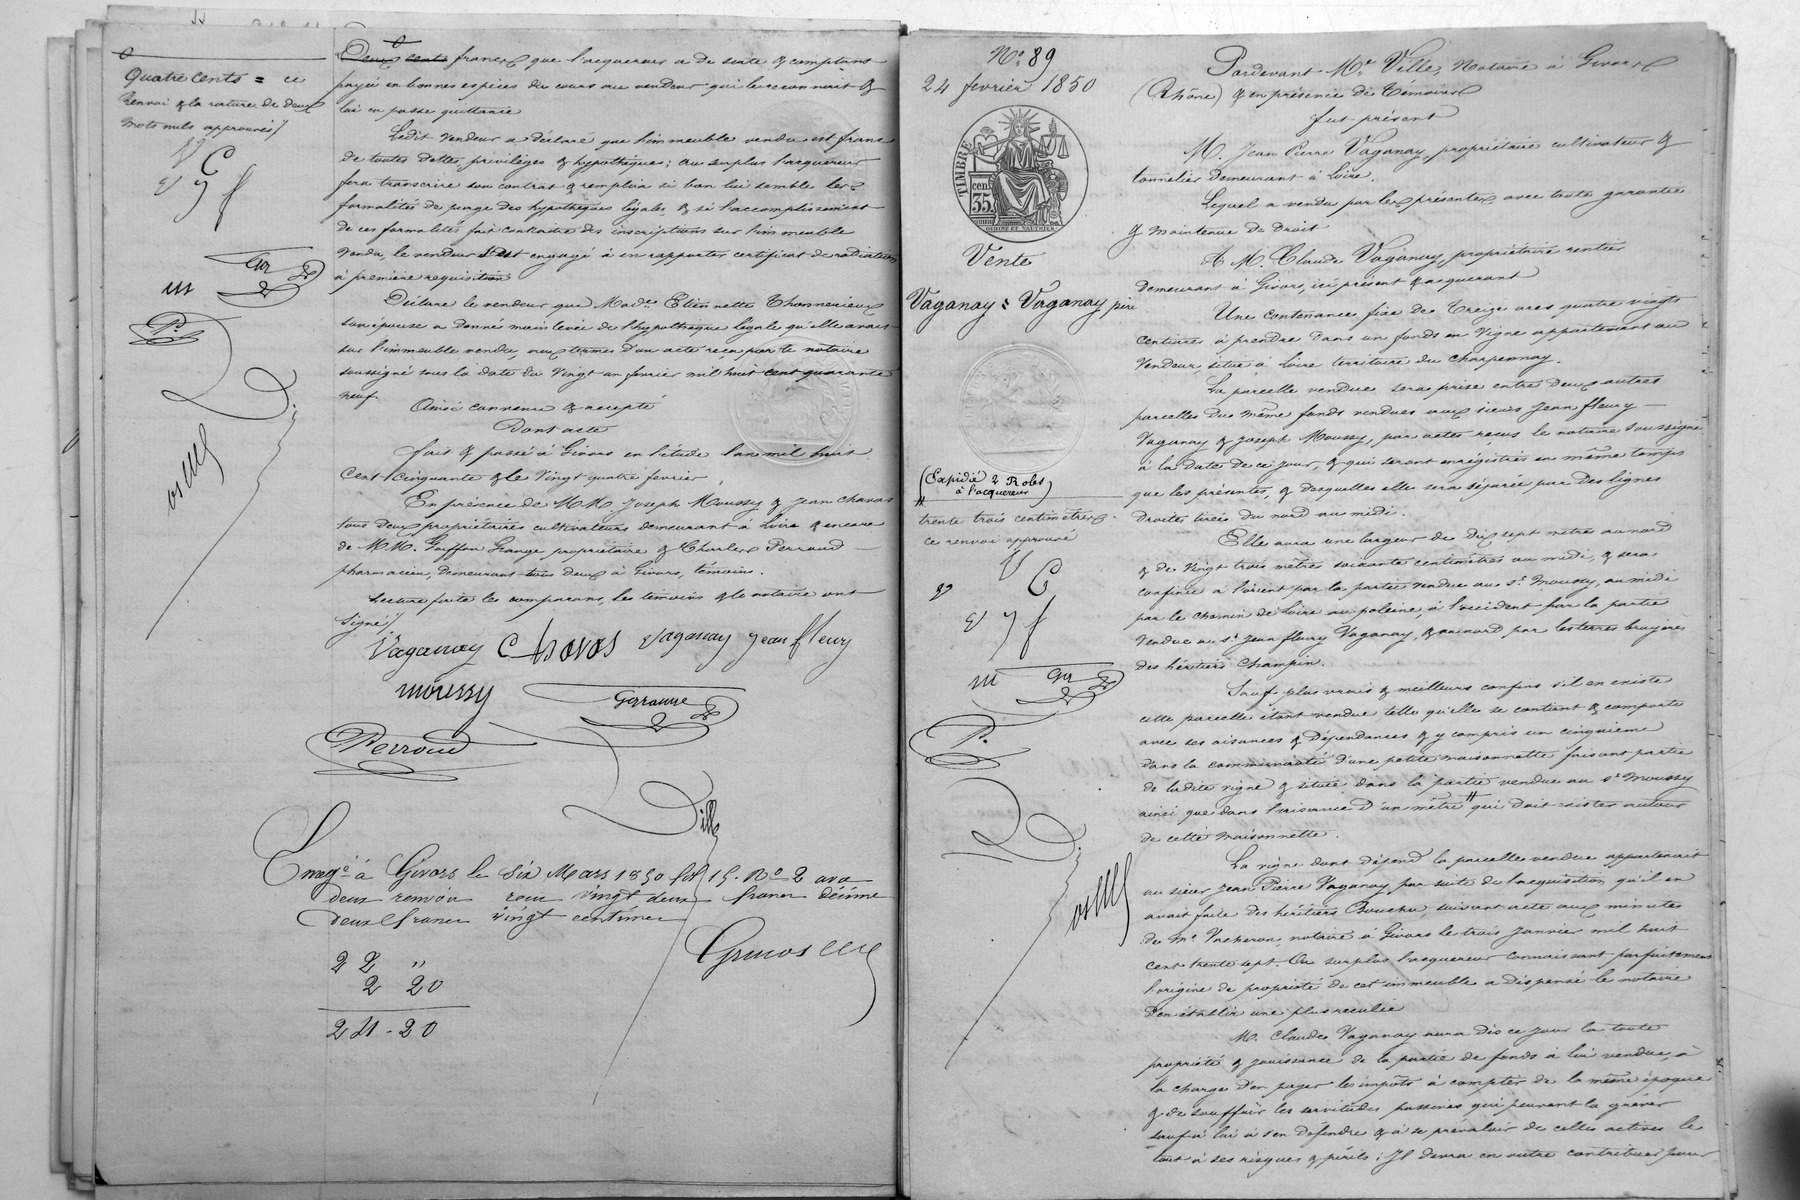 Quatre cents = ce
renvoi & la rature de deux
mots nuls approuvés
Deux cents francs que l'acquereur a de suite & comptant
payé en bonnes espèces du cours au vendeur qui le reconnait &
lui en passe quittance
Ledit vendeur a déclaré que l'immeuble vendu est franc
de toutes dettes, privilèges & hypothèques; au surplus l'acquereur
fera transcrire son contrat & remplira si bon lui semble les
formalités de purge des hypothèques légales, & si l'accomplissement
de ces formalités fait connaitre des inscriptions sur l'immeuble
vendu, le vendeur s'est engagé à en rapporter certificat de radiation
à première requisition
Déclare le vendeur que Mad.e Etiennette Thonnerieux
son épouse a donné main levée de l'hypothèque légale qu'elle avait
sur l'immeuble vendu, aux termes d'un acte reçu par le notaire
soussigné sous la date du vingt un fevrier mil huit cent quarante
neuf.
Ainsi convenu & accepté
Dont acte
fait & passé à Givors en l'étude l'an mil huit
cent cinquante & le vingt quatre fevrier
En présence de M.M. Joseph Moussy & Jean Chavas
tous deux propriétaires cultivateurs demeurant à Loire & encore
de M.M. Grange propriétaire & Charles Perraud
pharmacien, demeurant tous deux à Givors, témoins.
Lecture faite les comparans, les témoins & le notaire ont
signé
Vaganay Chavas Vaganay jean fleury
moussy
Perraud
Ville
Enreg.é à Givors le Six Mars 1850 fol 15. N.o 2 avec
deux renvois reçu vingt deux francs décime
Deux francs vingt centimes
22 "
2 20
24 - 20
N.o 89
24 fevrier 1850
TIMBRE
cen.
35.
Vente
Vaganay = Vaganay père
(Expédié 2 Roles
à l'acquereur)
trente trois centimètres.
ce renvoi approuvé
P.
Pardevant M.e Ville, Notaire à Givors
(Rhône) & en présence de témoins
fut présent
M. Jean Pierre Vaganay, propriétaire cultivateur &
tonnelier demeurant à Loire.
Lequel a vendu par les présentes avec toute garantie
& maintenue de droit
A M. Claude Vaganay, propriétaire rentier
demeurant à Givors, ici présent & acquerant
Une contenance fixe de treize ares quatre vingts
centiares à prendre dans un fonds en vigne appartenant au
vendeur, situé à Loire territoire du Charpennay.
La parcelle vendue sera prise entre deux autres
parcelles du même fonds vendues aux sieurs Jean fleury
Vaganay & Joseph Moussy, par actes reçus le notaire soussigné
à la date de ce jour, & qui seront enregistrés en même temps
que les présentes, & desquelles elle sera séparée par des lignes
droites tirées du nord au midi.
Elle aura une largeur de dix sept mètres au nord
& de vingt trois mètres soixante centimètres au midi, & sera
confinée à l'orient par la partie vendue au s.r Moussy, au midi
par le chemin de Loire au poleine, à l'occident par la partie
vendue au s.r Jean fleury Vaganay, & au nord par les terres bruyères
des héritiers Champin.
Sauf plus vrais & meilleurs confins s'il en existe
cette parcelle étant vendue telle qu'elle se contient & comporte
avec ses aisances & dépendances & y compris un cinquième
dans la communauté d'une petite maisonnette faisant partie
de ladite vigne & située dans la partie vendue au s.r Moussy
ainsi que dans l'aisance d'un mètre qui doit exister autour
de cette maisonnette.
La vigne dont dépend la parcelle vendue appartenait
au sieur Jean Pierre Vaganay par suite de l'acquisition qu'il en
avait faite des héritiers Bouchu, suivant acte aux minutes
de M.e Vacheron, notaire à Givors le trois janvier mil huit
cent trente sept. Au surplus l'acquereur connaissant parfaitement
l'origine de propriété de cet immeuble a dispensé le notaire
d'en établir une plus reculée
M. Claude Vaganay aura dès ce jour la toute
propriété & jouissance de la partie de fonds à lui vendue, à
la charge d'en payer les impôts à compter de la même époque
& de souffrir les servitudes passives qui peuvent la grever
sauf à lui à s'en défendre & à se prévaloir de celles actives le
tout à ses risques & périls; Il devra en outre contribuer pour